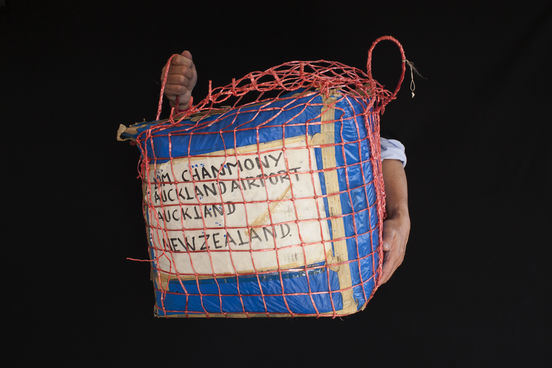 CHANMONY
AUCKLAND AIRPORT
AUCKLAND
NEW ZEALAND.